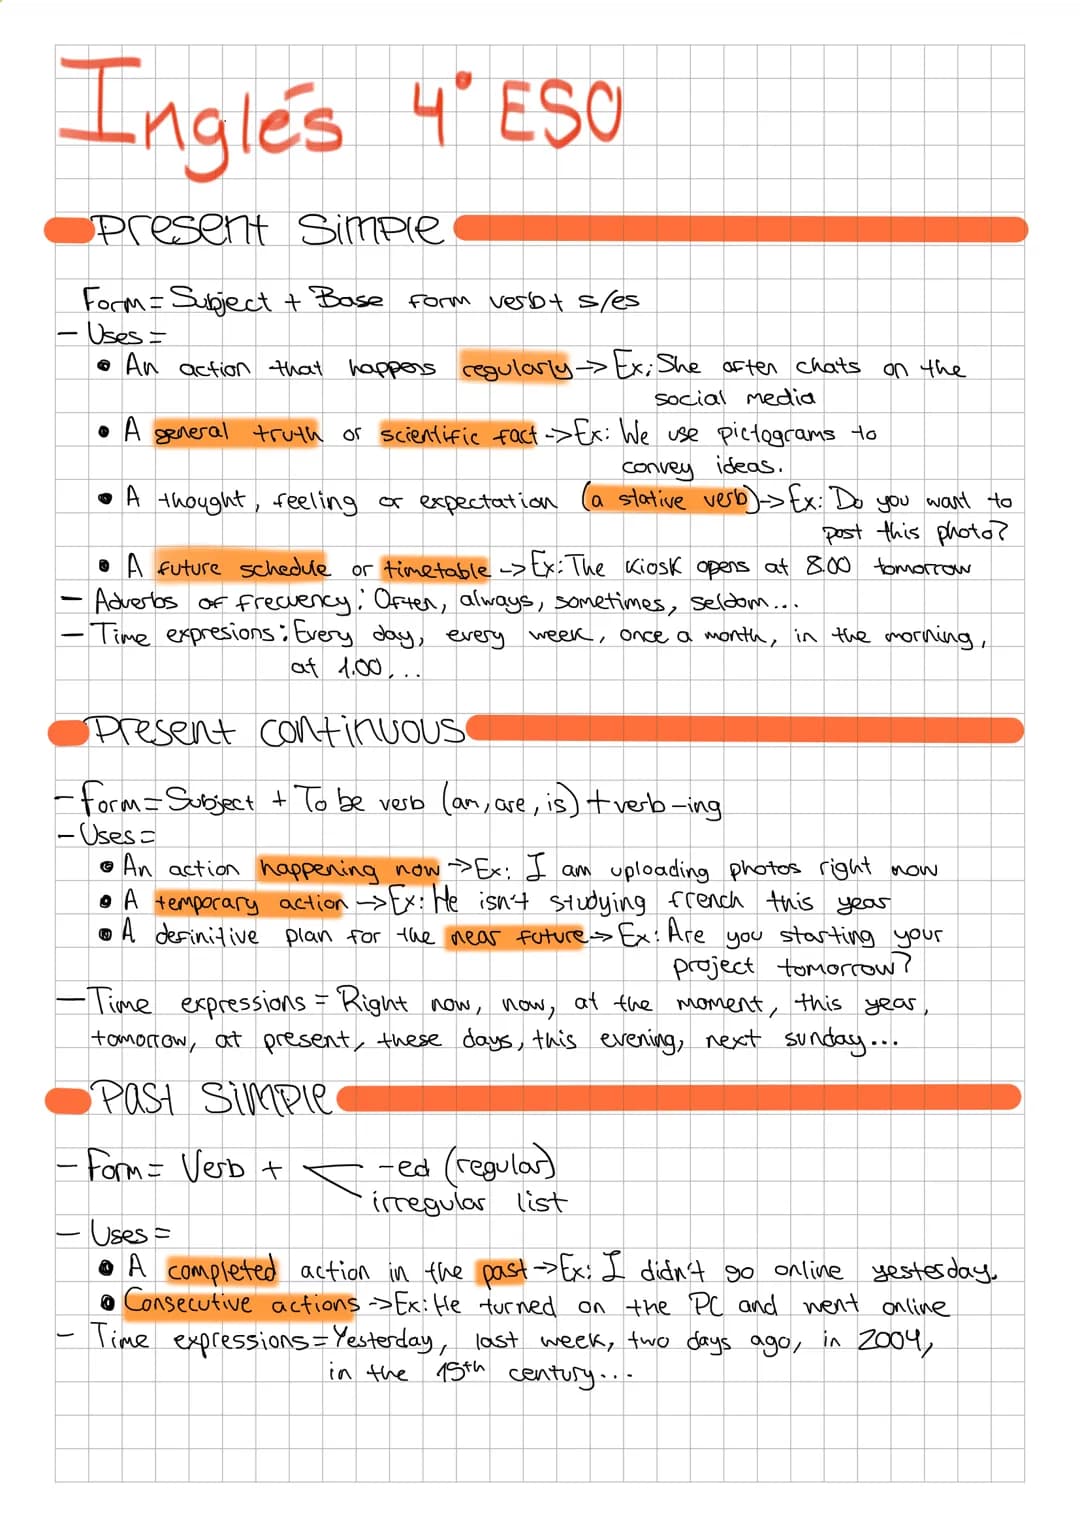 Inglés 4º ESO
Present Simple
Form = Subject + Base form verb + s/es
- Uses =
• An action that happens regularly -> Ex: She often chats on the
social media
• A general truth or scientific fact -> Ex: We use pictograms to
convey ideas.
• A thought, feeling or expectation (a stative verb) -> Ex: Do you want to
post this photo?
• A future schedule or timetable -> Ex: The kiosk opens at 8:00 tomorrow
- Adverbs of frecuency: Often, always, sometimes, seldom...
- Time expresions: Every day, every week, once a month, in the morning,
at 1:00,...
Present continuous
- Form = Subject + To be verb (am, are, is) + verb -ing
- Uses =
• An action happening now -> Ex: I am uploading photos right now
• A temporary action -> Ex: He isn't studying french this year
• A definitive plan for the near future -> Ex: Are you starting your
project tomorrow?
- Time expressions = Right now, now, at the moment, this year,
tomorrow, at present, these days, this evening, next sunday...
Past Simple
- Form = Verb + -ed (regular)
irregular list
- Uses =
• A completed action in the past -> Ex: I didn't go online yesterday.
• Consecutive actions -> Ex: He turned on the PC and went online
- Time expressions = Yesterday, last week, two days ago, in 2004,
in the 15th century...